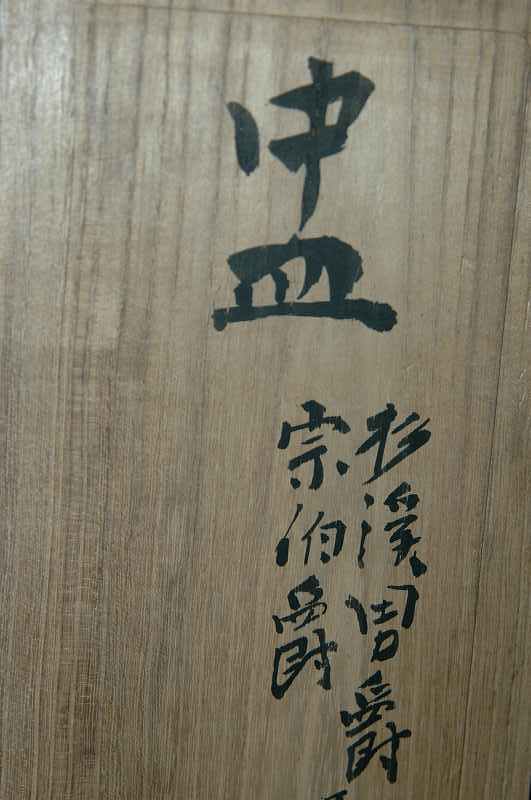 中皿
杉溪男爵
宗伯爵